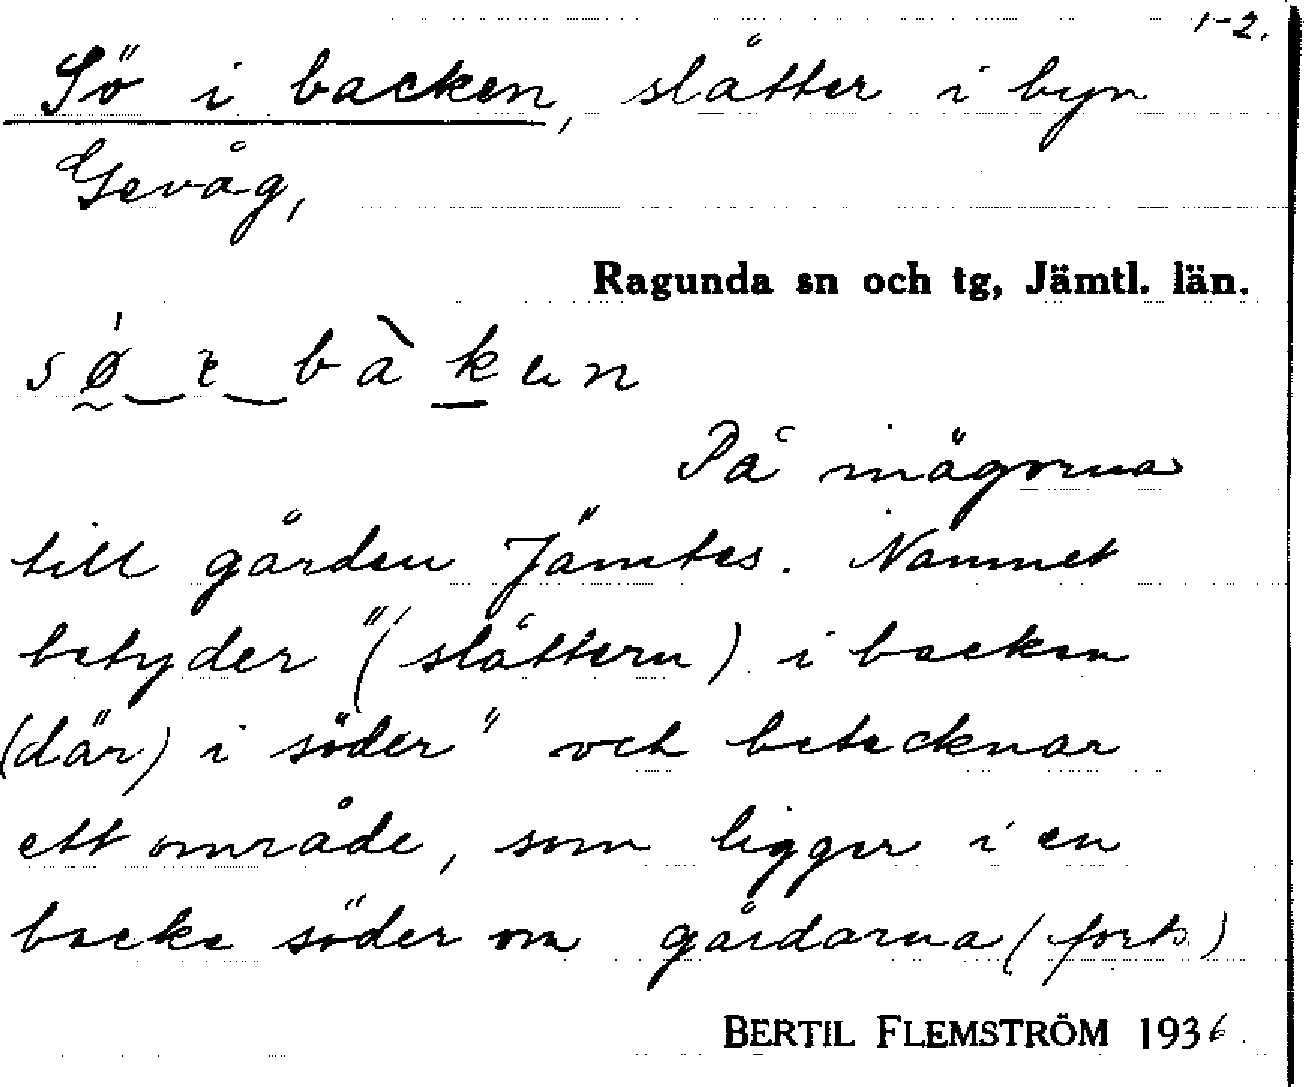 1-2.
Sö i backen, slåtter i byn
Gevåg,
Ragunda sn och tg, Jämtl. län.
På inägorna
till gården Jämtes. Namnet
betyder "(slåttern) i backen
(där) i söder" och betecknar
ett område, som ligger i en
backe söder om gårdarna (forts)
BERTIL FLEMSTRÖM 1936